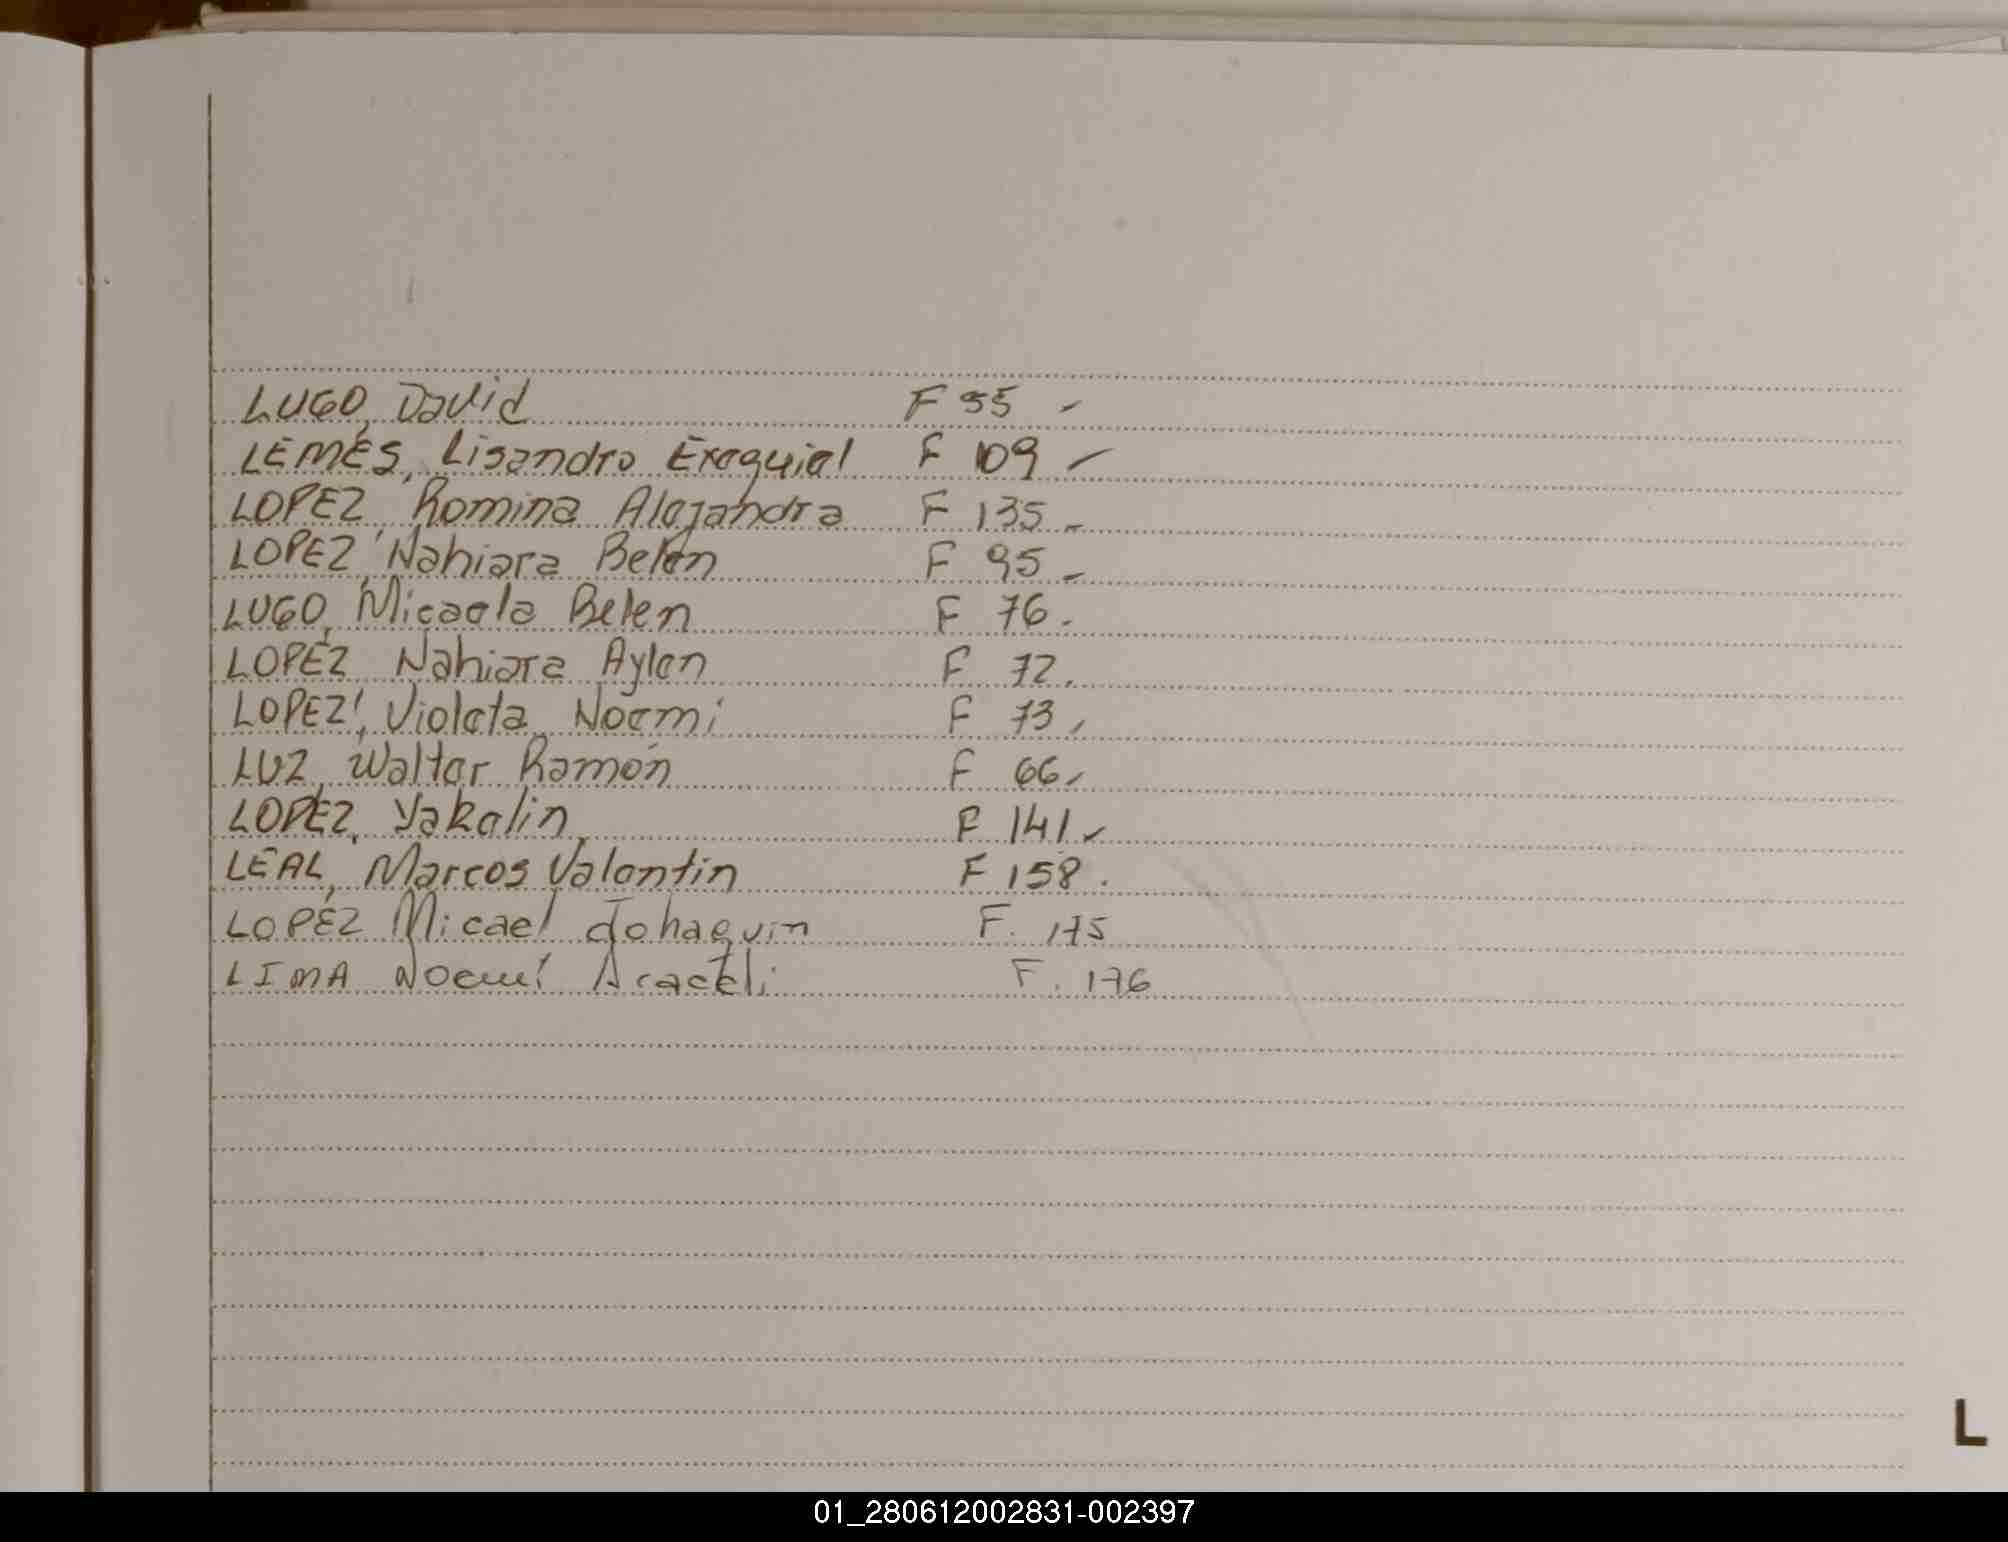 LUGO, David F 55
LEMES, Lisandro Exequiel F 109
LOPEZ, Romina Alejandra F 135
LOPEZ, Nahiara Belen F 95
LUGO, Micaela Belen F 76
LOPEZ, Nahiara Aylen F 72
LOPEZ, Violeta Noemi F 73
LUZ, Walter Ramón F 66
LOPEZ, Yakelin F 141
LEAL, Marcos Valentin F 158
LOPEZ Micael Johaquin F. 175
LIMA Noemí Araceli F. 176
L
01_280612002831-002397